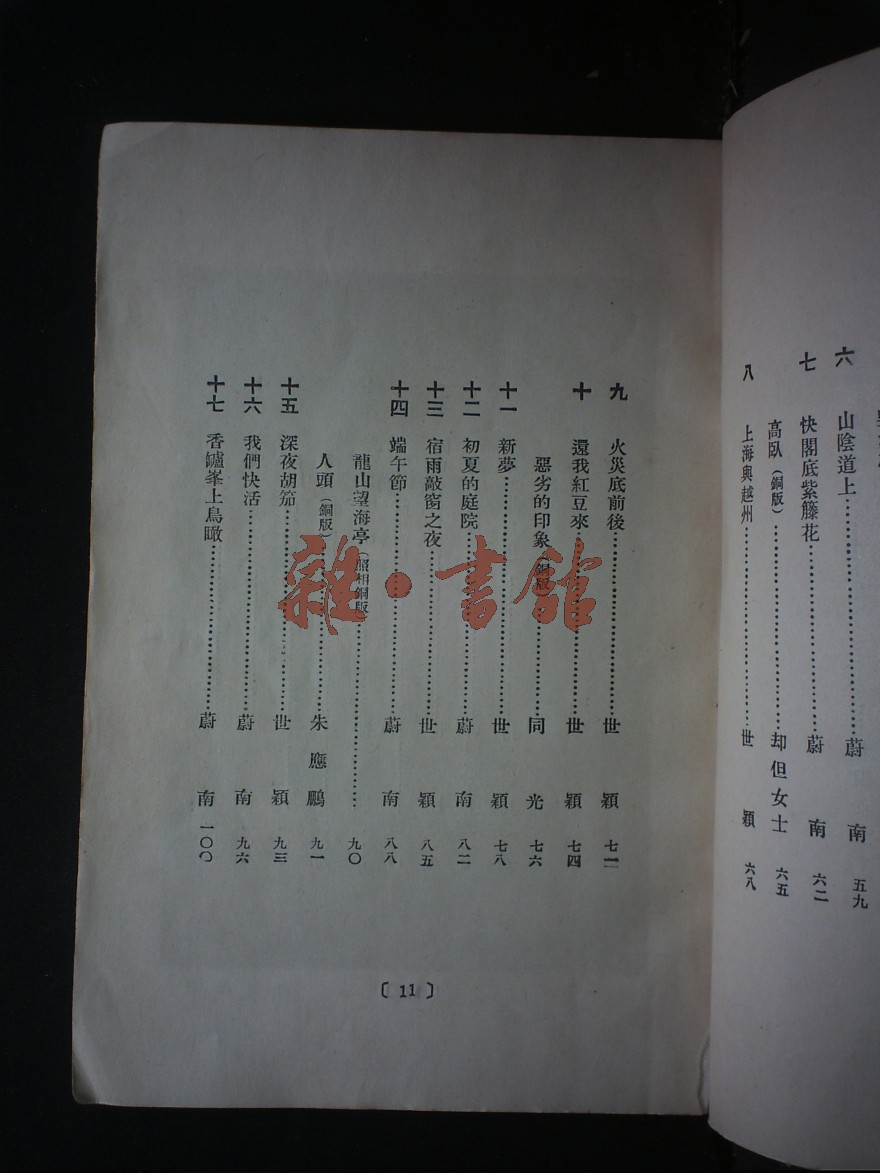 六 山陰道上 蔚南 五九
七 快閣底紫籐花 蔚南 六二
高臥（銅版） 却但女士 六五
八 上海與越州 世穎 六八
九 火災底前後 世穎 七一
十 還我紅豆來 世穎 七四
惡劣的印象（銅版） 同光 七六
十一 新夢 世穎 七八
十二 初夏的庭院 蔚南 八二
十三 宿雨敲窗之夜 世穎 八五
十四 端午節 蔚南 八八
龍山望海亭（照相銅版） 九〇
人頭（銅版） 朱應鵬 九一
十五 深夜胡笳 世穎 九三
十六 我們快活 蔚南 九六
十七 香鑪峯上鳥瞰 蔚南 一〇〇
〔11〕
雜·書館